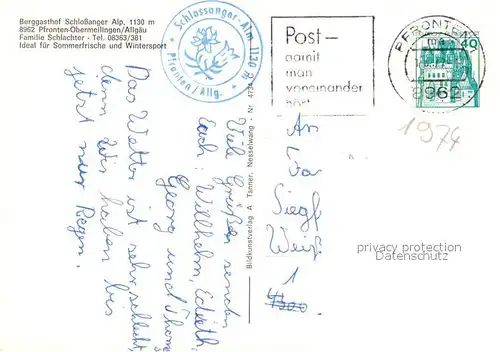 Berggasthof Schloßanger Alp, 1130 m
8962 Pfronten-Obermeilingen/Allgäu
Familie Schlachter - Tel. 08363/381
Ideal für Sommerfrische und Wintersport
Schlossanger-Alm 1130 m
Pfronten/Allg.
Post-
damit
man
voneinander
hört
PFRONTEN 1
8962
40
1974
Das Wetter ist sehr schlecht,
denn wir haben bis
jetzt nur Regen.
Viele Grüße senden
Euch: Willhelm, Edith,
Georg und Thomas
Bildkunstverlag A. Tanner, Nesselwang - Nr. 4734
An
Siegf
Weiß
1
4300
privacy protection
Datenschutz